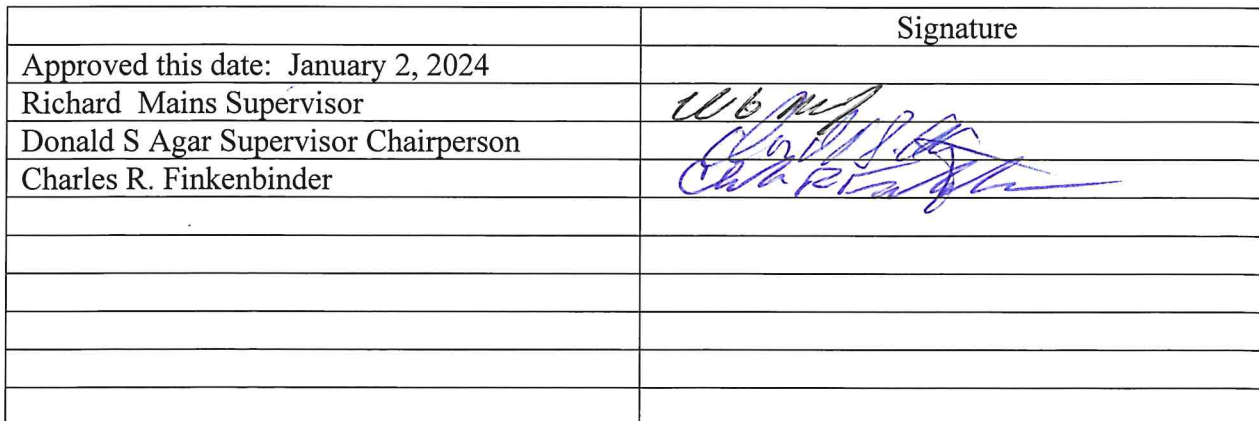 Signature
Approved this date: January 2, 2024
Richard Mains Supervisor
Donald S Agar Supervisor Chairperson
Charles R. Finkenbinder